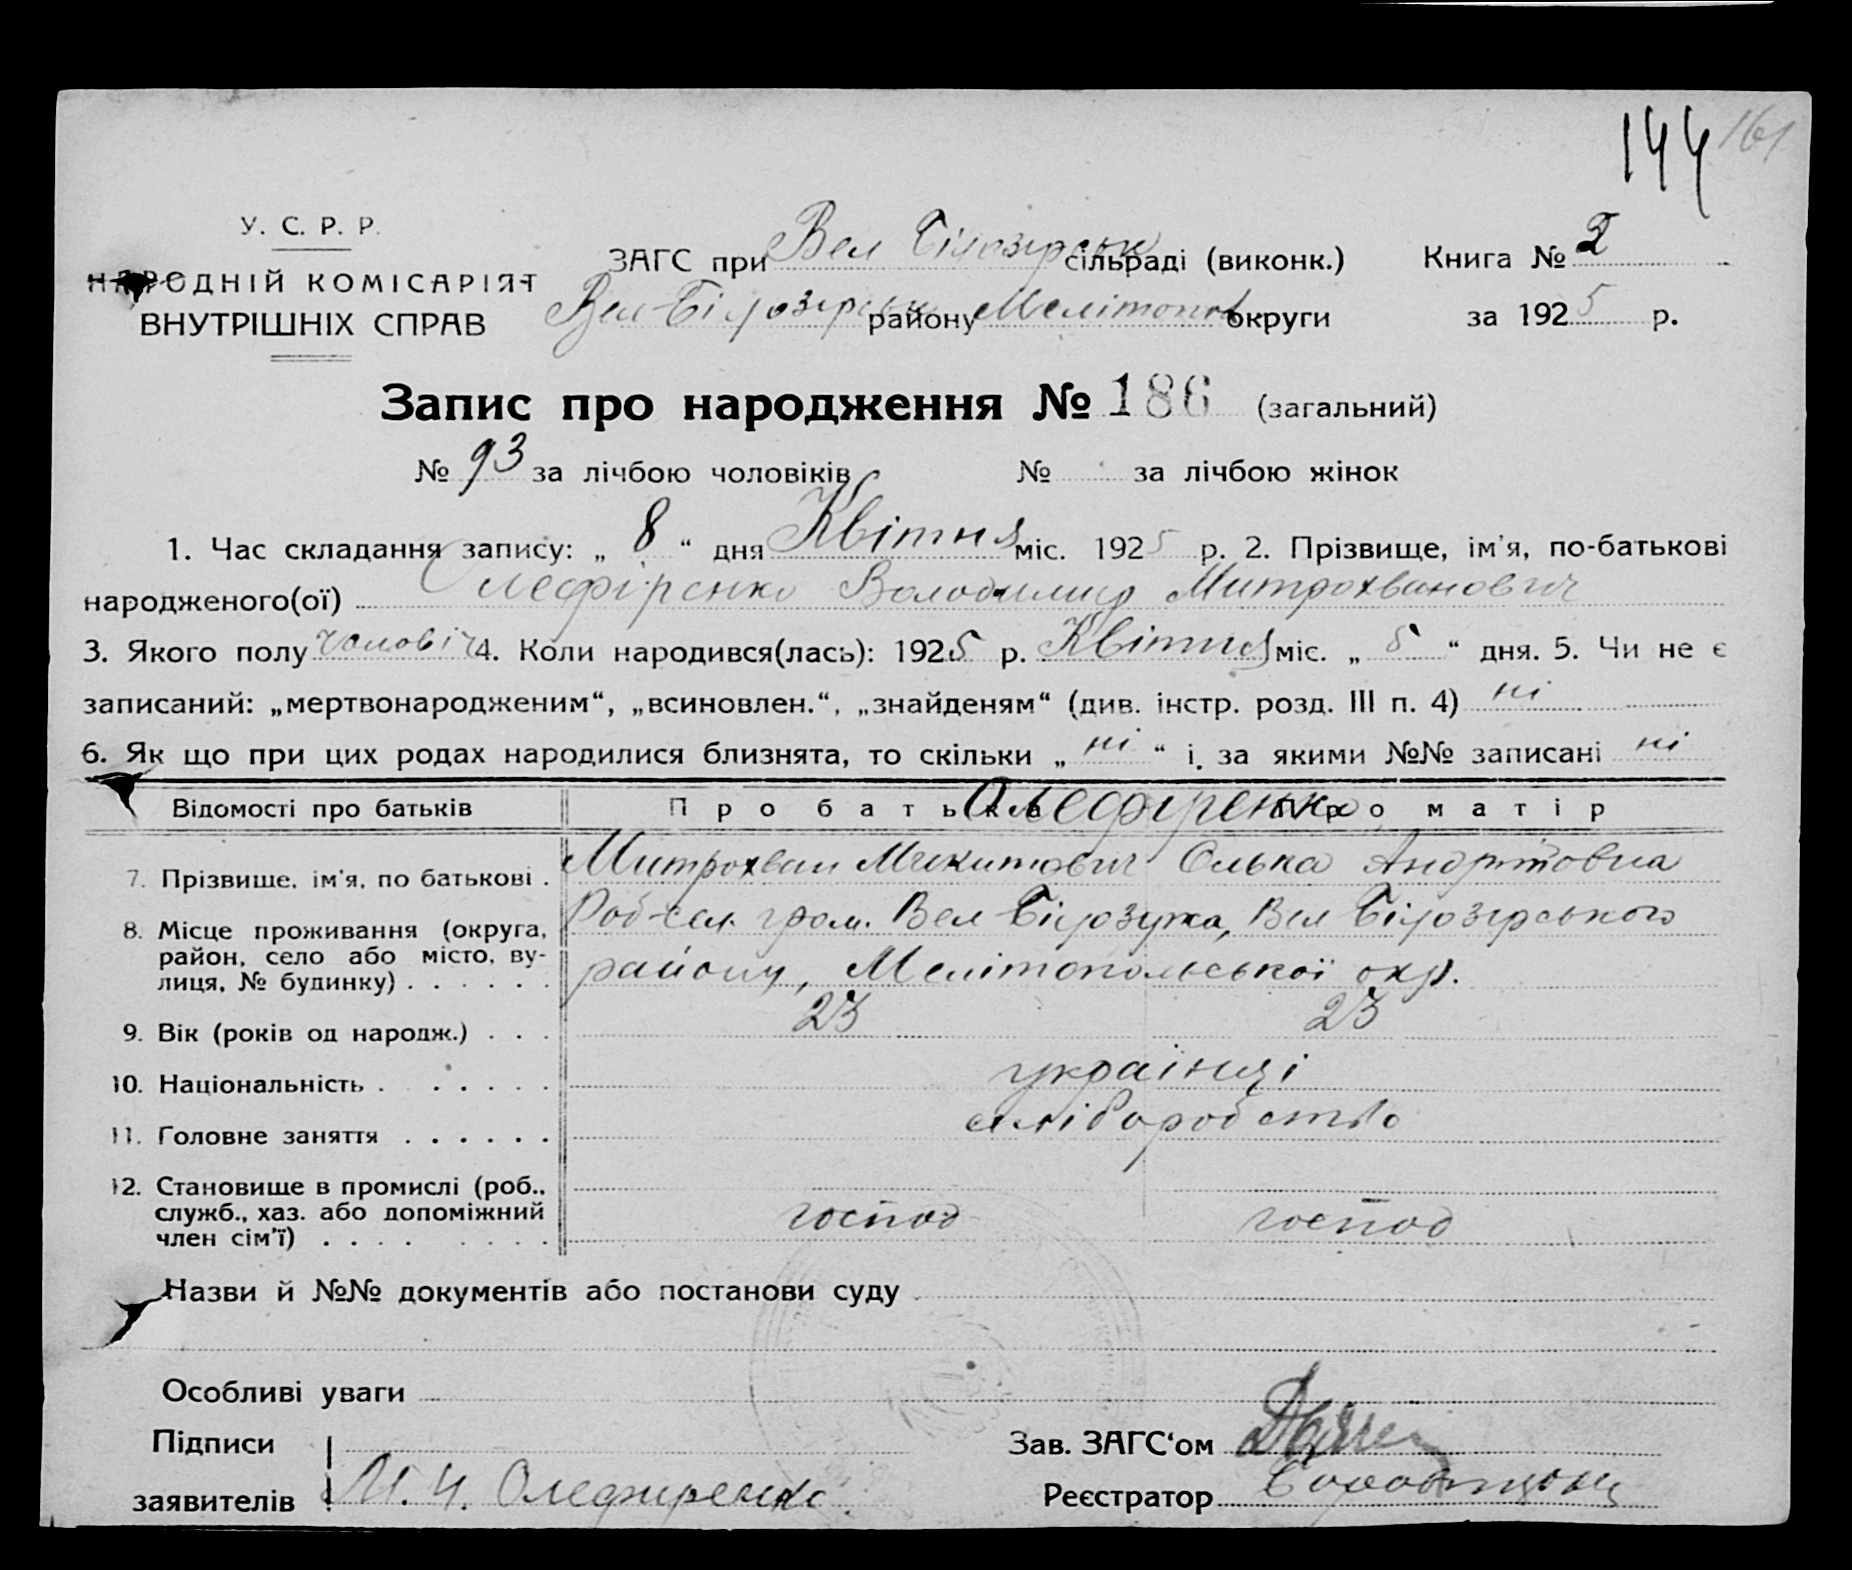 144 161
У. С. Р. Р.
НАРОДНІЙ КОМІСАРІЯТ
ВНУТРІШНІХ СПРАВ
ЗАГС при Вел Білозірськ сільраді (виконк.) Книга № 2
Вел-Білозірськ району Мелітопол округи за 1925 р.
Запис про народження № 186 (загальний)
№ 93 за лічбою чоловіків № за лічбою жінок
1. Час складання запису: „ 8 “ дня Квітня міс. 1925 р. 2. Прізвище, ім'я, по-батькові
народженого(ої) Олефіренко Володимир Митрохванович
3. Якого полу чоловіч 4. Коли народився(лась): 1925 р. Квітня міс. „ 5 “ дня. 5. Чи не є
записаний: „мертвонародженим“, „всиновлен.“, „знайденям“ (див. інстр. розд. III п. 4) ні
6. Як що при цих родах народилися близнята, то скільки „ ні “ і за якими №№ записані ні
Відомості про батьків Про батька Про матір
Олефіренко
7. Прізвище, ім'я, по батькові . Митрохван Микитович Олька Андріївна
8. Місце проживання (округа, Роб-сел. гром. Вел Білозірка, Вел Білозірського
район, село або місто, ву-
лиця, № будинку) . . . . . . району, Мелітопольської окр.
9. Вік (років од народж.) . . . 23 23
10. Національність . . . . . . українці
11. Головне заняття . . . . . . хліборобство
12. Становище в промислі (роб.,
служб., хаз. або допоміжний господ господ
член сім'ї) . . . . . . . .
Назви й №№ документів або постанови суду
Особливі уваги
Підписи Зав. ЗАГС‘ом
заявителів М. Н. Олефиренко Реєстратор